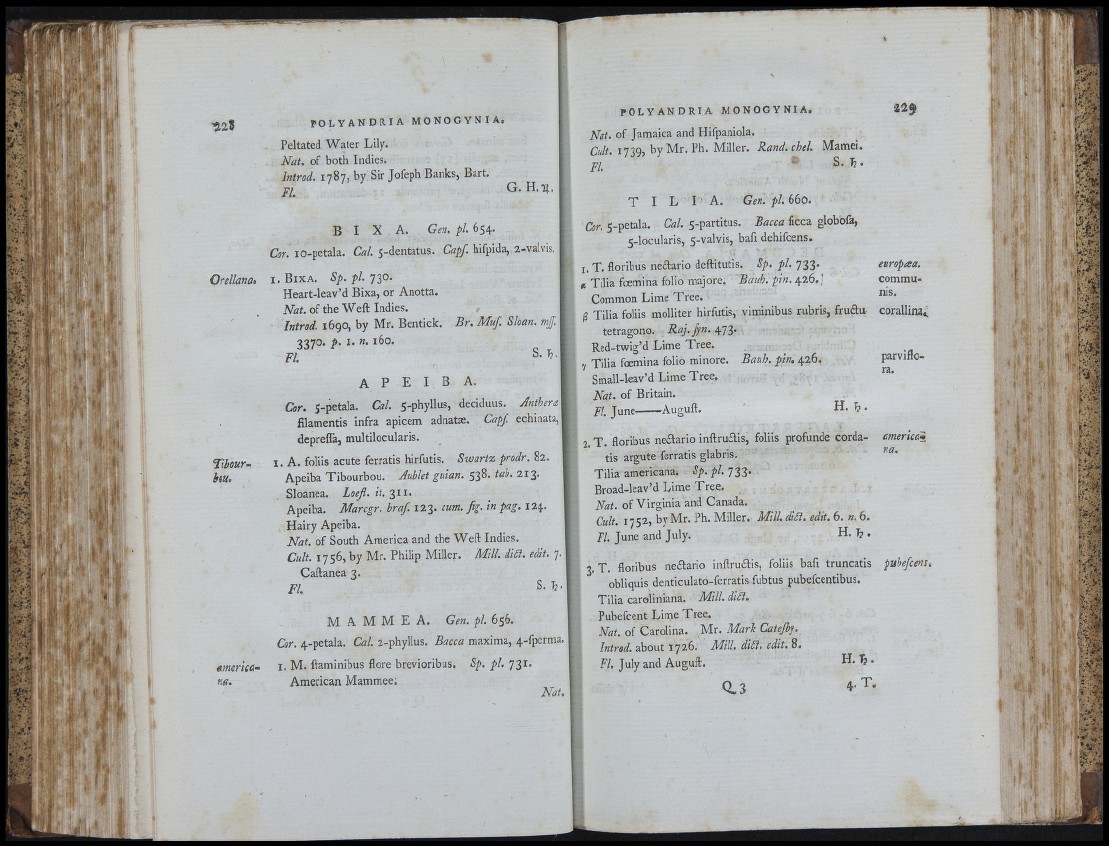 228 POLYANDRIA MONOGYNIA.
Peltated Water Lily.
Nat. of both Indies.
Introd. 1787, by Sir Joſeph Banks, Bart.
Fl. G. H. ♃.
BIXA. Gen. pl. 654.
Cor. 10-petala. Cal. 5-dentatus. Capſ. hiſpida, 2-valvis.
Orellana. 1. BIXA. Sp. pl. 730.
Heart-leav'd Bixa, or Anotta.
Nat. of the Weſt Indies.
Introd. 1690, by Mr. Bentick. Br. Muſ. Sloan. mſſ.
3370. p. 1. n. 160.
Fl. S. ♄.
APEIBA.
Cor. 5-petala. Cal. 5-phyllus, deciduus. Antheræ
filamentis infra apicem adnatæ. Capſ. echinata,
depreſſa, multilocularis.
Tibour- 1. A. foliis acute ſerratis hirſutis. Swartz prodr. 82.
bou. Apeiba Tibourbou. Aublet guian. 538. tab. 213.
Sloanea. Loefl. it. 311.
Apeiba. Marcgr. braſ. 123. cum. fig. in pag. 124.
Hairy Apeiba.
Nat. of South America and the Weſt Indies.
Cult. 1756, by Mr. Philip Miller. Mill. dict. edit. 7.
Caſtanea 3.
Fl. S. ♄.
MAMMEA. Gen. pl. 656.
Cor. 4-petala. Cal. 2-phyllus. Bacca maxima, 4-ſperma.
america- 1. M. ſtaminibus flore brevioribus. Sp. pl. 731.
na. American Mammee.
Nat.
POLYANDRIA MONOGYNIA. 229
Nat. of Jamaica and Hiſpaniola.
Cult. 1739, by Mr. Ph. Miller. Rand. chel. Mamei.
Fl. S. ♄.
TILIA. Gen. pl. 660.
Cor. 5-petala. Cal. 5-partitus. Bacca ſicca globoſa,
5-locularis, 5-valvis, baſi dehiſcens.
1. T. floribus nectario deſtitutis. Sp. pl. 733. europæa.
α Tilia fœmina folio majore. Bauh. pin. 426. commu-
Common Lime Tree. nis.
β Tilia foliis molliter hirſutis, viminibus rubris, fructu corallina.
tetragono. Raj. ſyn. 473.
Red-twig'd Lime Tree.
γ Tilia fœmina folio minore. Bauh. pin. 426. parviflo-
Small-leav'd Lime Tree. ra.
Nat. of Britain.
Fl. June——Auguſt. H. ♄.
2. T. floribus nectario inſtructis, foliis profunde corda- america-
tis argute ſerratis glabris. na.
Tilia americana. Sp. pl. 733.
Broad-leav'd Lime Tree.
Nat. of Virginia and Canada.
Cult. 1752, by Mr. Ph. Miller. Mill. dict. edit. 6. n. 6.
Fl. June and July. H. ♄.
3. T. floribus nectario inſtructis, foliis baſi truncatis pubeſcens.
obliquis denticulato-ſerratis ſubtus pubeſcentibus.
Tilia caroliniana. Mill. dict.
Pubeſcent Lime Tree.
Nat. of Carolina. Mr. Mark Cateſby.
Introd. about 1726. Mill. dict. edit. 8.
Fl. July and Auguſt. H. ♄.
Q 3 4. T.